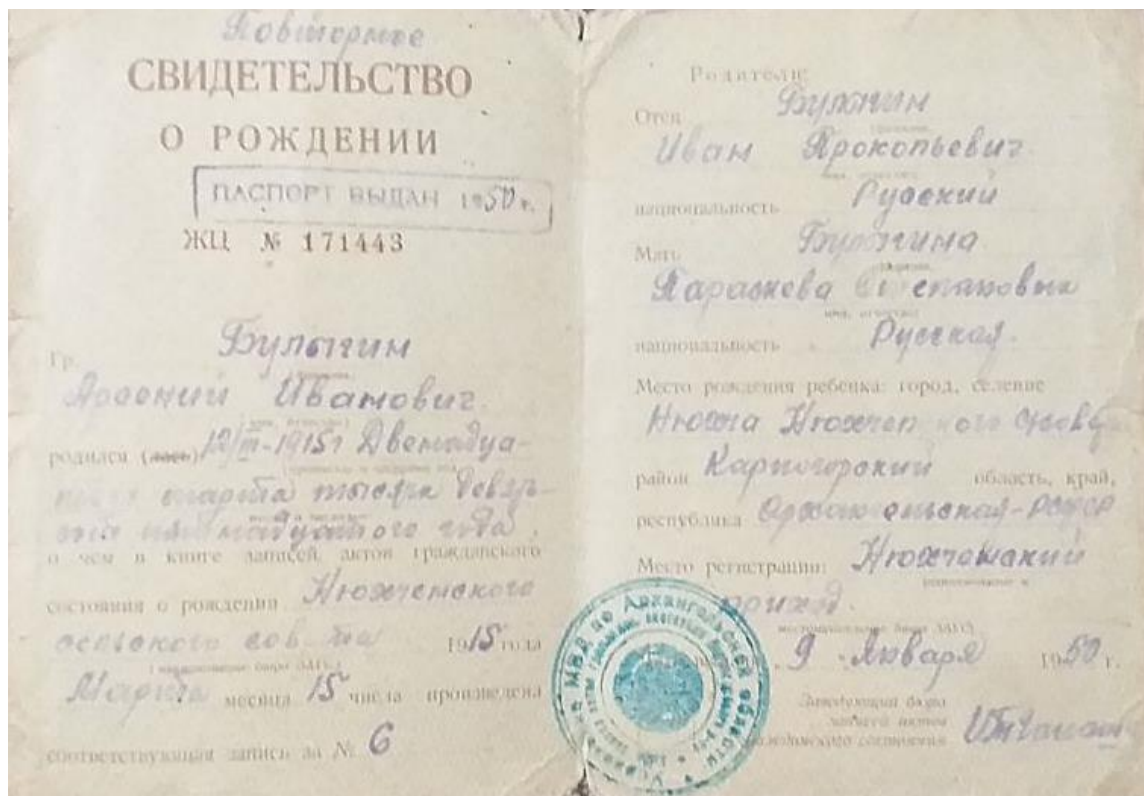 Повторное
СВИДЕТЕЛЬСТВО
О РОЖДЕНИИ
ПАСПОРТ ВЫДАН 1950 г.
ЖЦ № 171443
Гр. Булыгин
Арсений Иванович
родился (лась) 12/III-1915 г Двенадца-
того марта тысяча девять-
сот пятнадцатого года
о чем в книге записей актов гражданского
состояния о рождении Нюхчемского
сельского сов та 1915 года
Марта месяца 15 числа произведена
соответствующая запись за № 6
Родители:
Отец Булыгин
Иван Прокопьевич
национальность Русский
Мать Булыгина
Парасковья Степановна
национальность Русская
Место рождения ребенка: город, селение
Нюхча
район Карпогорский область, край,
республика Архангельская-РСФСР
Место регистрации: Нюхчемский
приход
9 Января 1950 г.
Заведующий бюро
записей актов
гражданского состояния